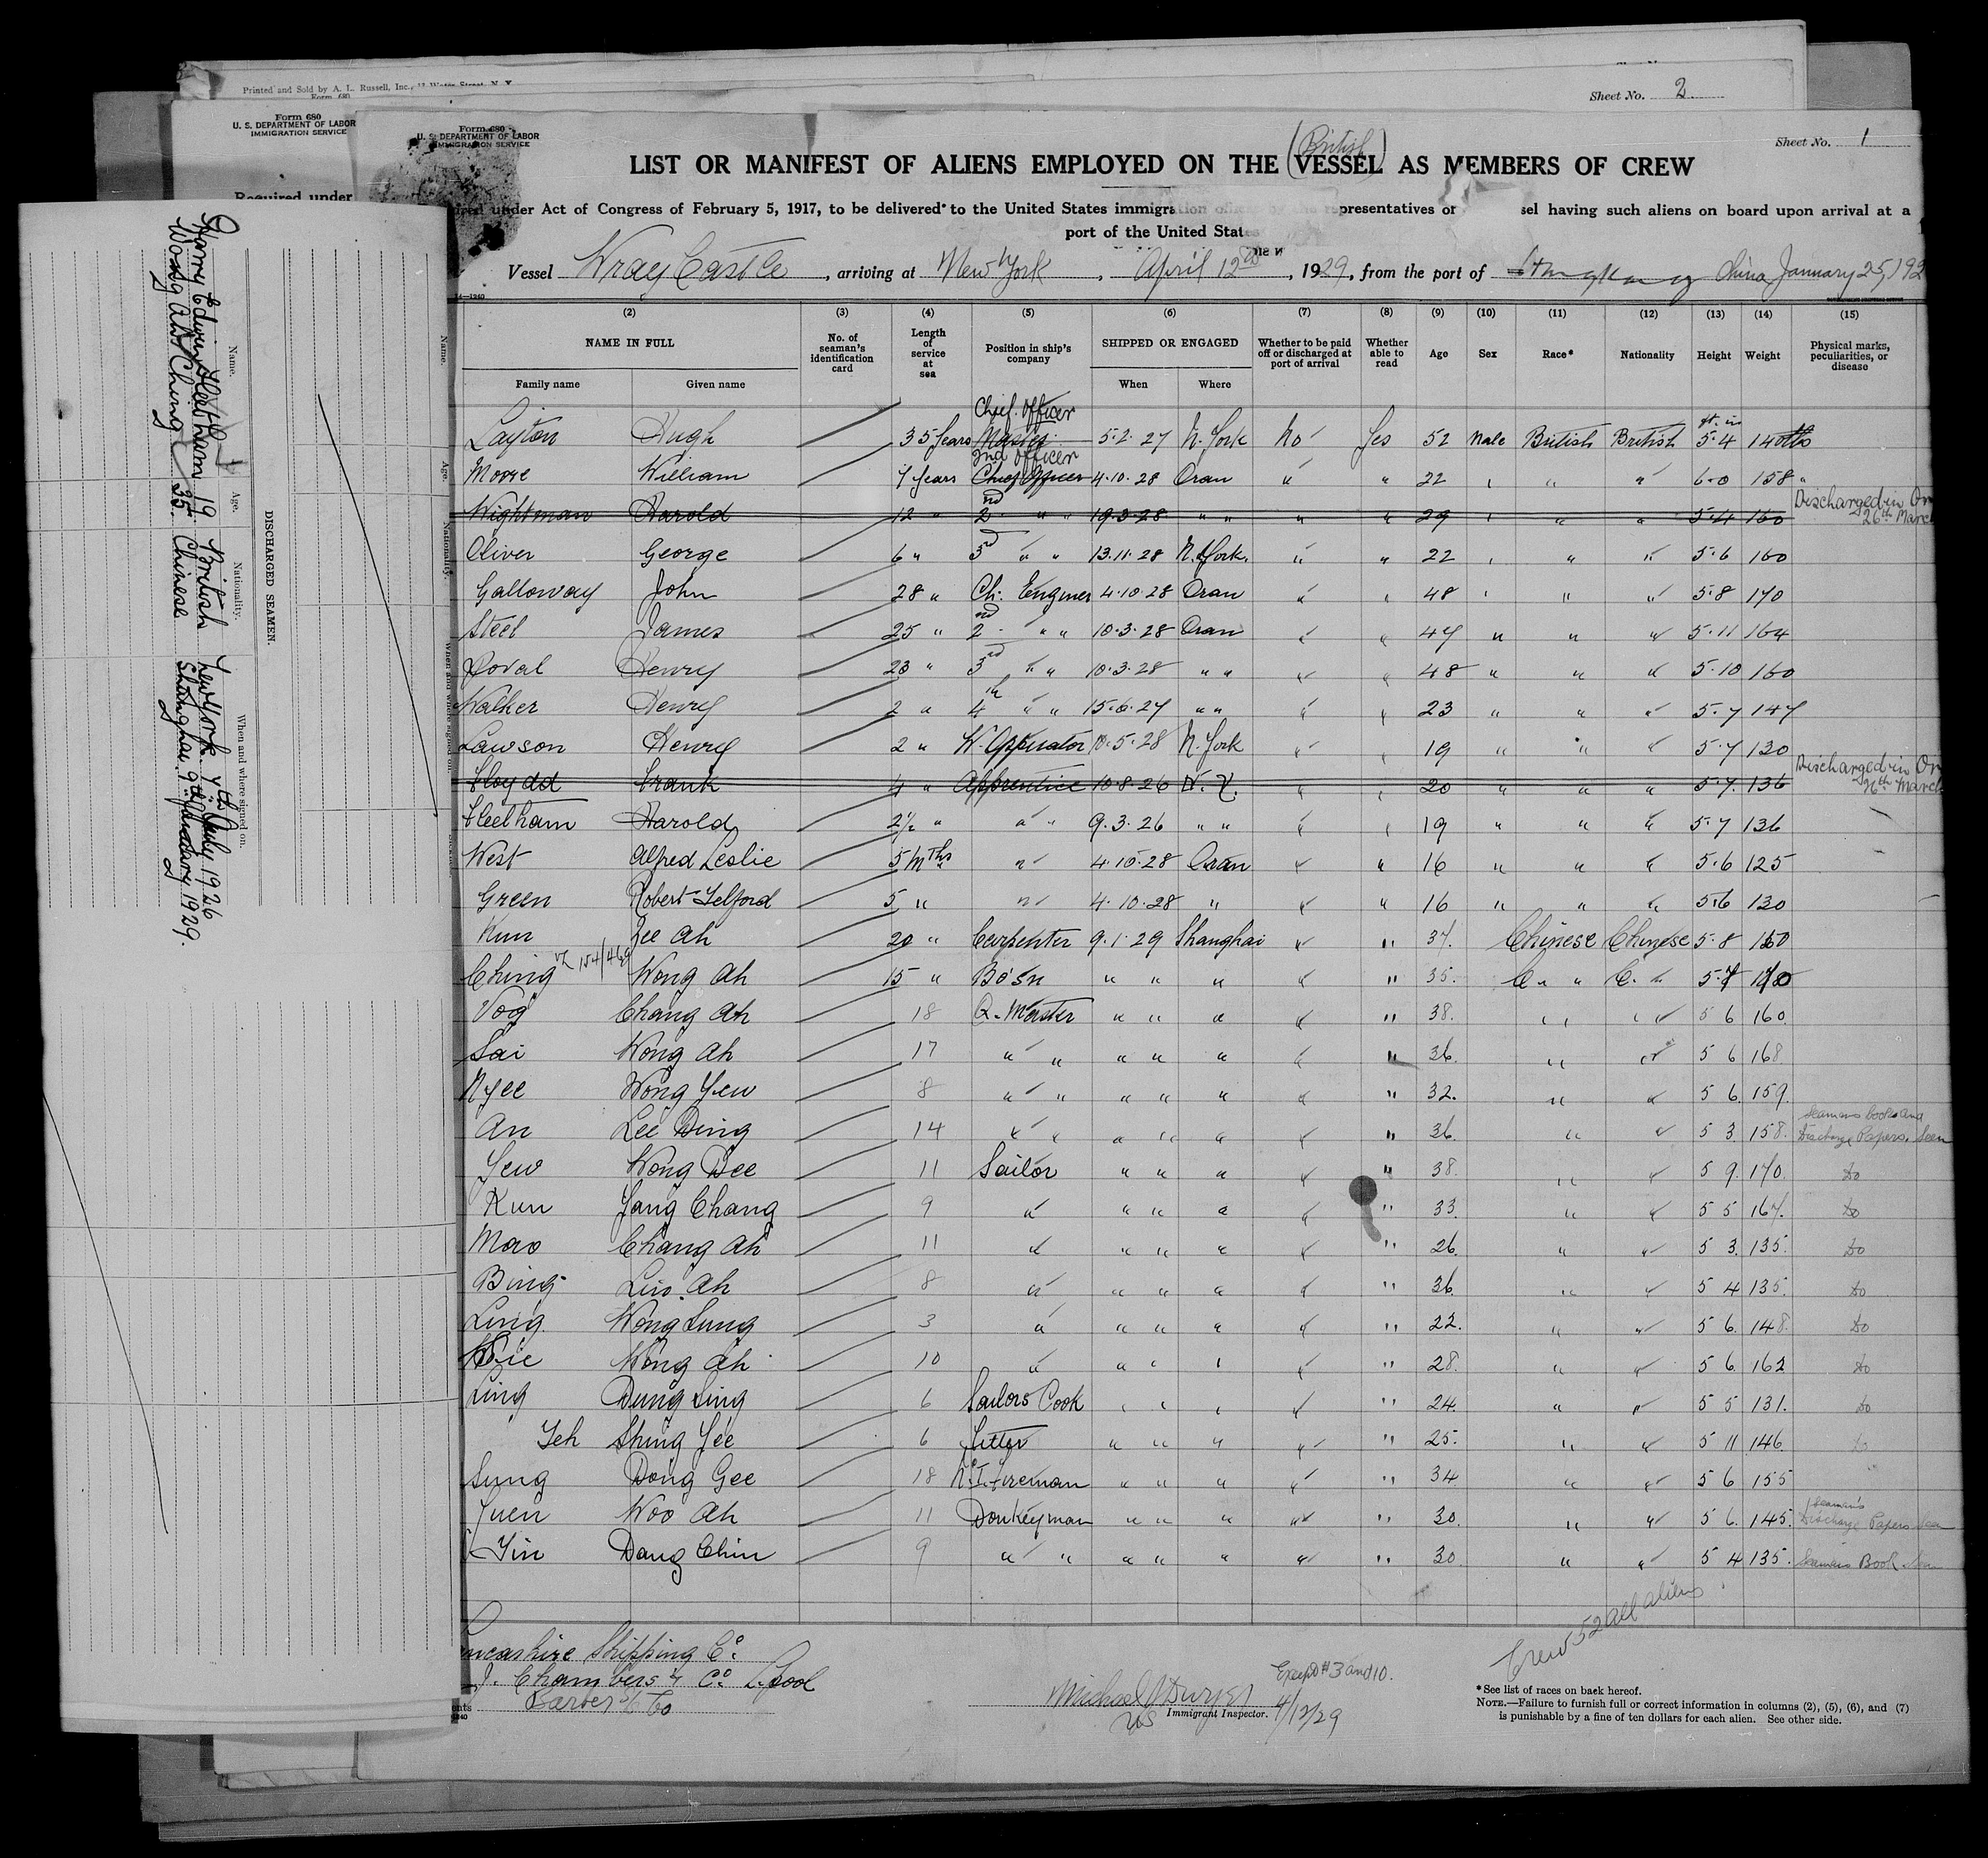 Printed and Sold by A. L. Russell, Inc.,
Form 680
Sheet No. 2
Form 680
U. S. DEPARTMENT OF LABOR
IMMIGRATION SERVICE
Required under
Form 680
U. S. DEPARTMENT OF LABOR
IMMIGRATION SERVICE
Sheet No. 1
(British)
LIST OR MANIFEST OF ALIENS EMPLOYED ON THE VESSEL AS MEMBERS OF CREW
under Act of Congress of February 5, 1917, to be delivered to the United States having such aliens on board upon arrival at a
port of the United States
Vessel Wray Castle, arriving at New York, April 12th, 1929, from the port of China January 25, 192
(2) (3) (4) (5) (6) (7) (8) (9) (10) (11) (12) (13) (14) (15)
NAME IN FULL No. of seaman's identification card Length of service at sea Position in ship's company SHIPPED OR ENGAGED Whether to be paid off or discharged at port of arrival Whether able to read Age Sex Race* Nationality Height Weight Physical marks, peculiarities, or disease
Family name Given name When Where
Chief Officer ft. in
Layton Hugh 35 Years Master 5.2.27 N. York No Yes 52 Male British British 5.4 140 lbs
2nd Officer
Moore William 7 Years Chief Officer 4.10.28 Oran " " 22 " " 6.0 158 "
Wightman Harold 12 " 2nd " " 19.3.28 " " " " 29 " " 5.4 160 Discharged in
26th March
Oliver George 6 " 3rd " " 13.11.28 N. York. " " 22 " " 5.6 160
Galloway John 28 " Ch. Enginer 4.10.28 Oran " " 48 " " 5.8 170
Steel James 25 " 2nd " " 10.3.28 Oran " " 47 " " " 5.11 164
Doval Henry 23 " 3rd " " 10.3.28 " " " " 48 " " " 5.10 160
Walker Henry 2 " 4th " " 15.6.27 " " " " 23 " " " 5.7 147
Lawson Henry 2 " W. Operator 10.5.28 N. York " " 19 " " " 5.7 130
Floydd Frank 4 " Apprentice 10.8.26 N. Y. " " 20 " " " 5.7 136 Discharged in
26th March
Fleetham Harold 2½ " " " 9.3.26 " " " " 19 " " " 5.7 136
West Alfred Leslie 5 mths " 4.10.28 Oran " " 16 " " " 5.6 125
Green Robert Telford 5 " " 4.10.28 " " " 16 " " " 5.6 130
Kun Lee Ah 20 " Carpenter 9.1.29 Shanghai " " 37. Chinese Chinese 5.8 160
Ching Wong Ah 15 " Bo'sn " " " " 35. C. " " C. " 5.7
Vog Chang Ah 18 Q. Master " " " " " 38. " " 5 6 160.
Sai Wong Ah 17 " " " " " " " 36. " " 5 6 168
Nyee Wong Yew 8 " " " " " " " 32. " " 5 6. 159.
An Lee Ding 14 " " " " " " " 36. " " 5 3 158. Seamans Books and
Discharge Papers. Seen
Yew Wong Dee 11 Sailor " " " " " 38. " " 5 9. 170. do
Kun Yang Chang 9 " " " " " " 33. " " 5 5 167. do
Mao Chang Ah 11 " " " " " " 26. " " 5 3. 135. do
Bing Liu Ah 8 " " " " " " 36. " " 5 4 135. do
Ling Wong Sung 3 " " " " " " 22. " " 5 6. 148. do
Wong Ah 10 " " " " " " 28. " " 5 6. 162 do
Ling Dung Sing 6 Sailors Cook " " " " " 24. " " 5 5 131. do
Yeh Shing Yee 6 Fitter " " " " " 25. " " 5 11 146 do
Sung Dong Gee 18 No. 1. Fireman " " " " " 34 " " 5 6 155
Yuen Woo Ah 11 Donkeyman " " " " " 30. " " 5 6. 145. Seaman's
Discharge Papers Seen
Yin Dang Chin 9 " " " " " " " 30 " " 5 4 135. Seamans Book Seen
Crew 52 all aliens
Lancashire Shipping Co.
J. Chambers & Co. L'pool
Barber S/S Co
Except #3 and 10.
Michael J Dwyer 4/12/29
Immigrant Inspector.
*See list of races on back hereof.
NOTE.—Failure to furnish full or correct information in columns (2), (5), (6), and (7)
is punishable by a fine of ten dollars for each alien. See other side.
DISCHARGED SEAMEN.
Name. Age. Nationality. When and where signed on.
Harry Edwin Fleetham 19 British New York. 7th July 1926
Wong Ah Ching 35. Chinese Shanghai. 9th January 1929.